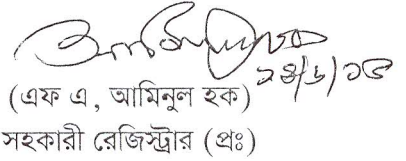 (এফ এ, আমিনুল হক)
সহকারী রেজিস্ট্রার (প্রঃ)